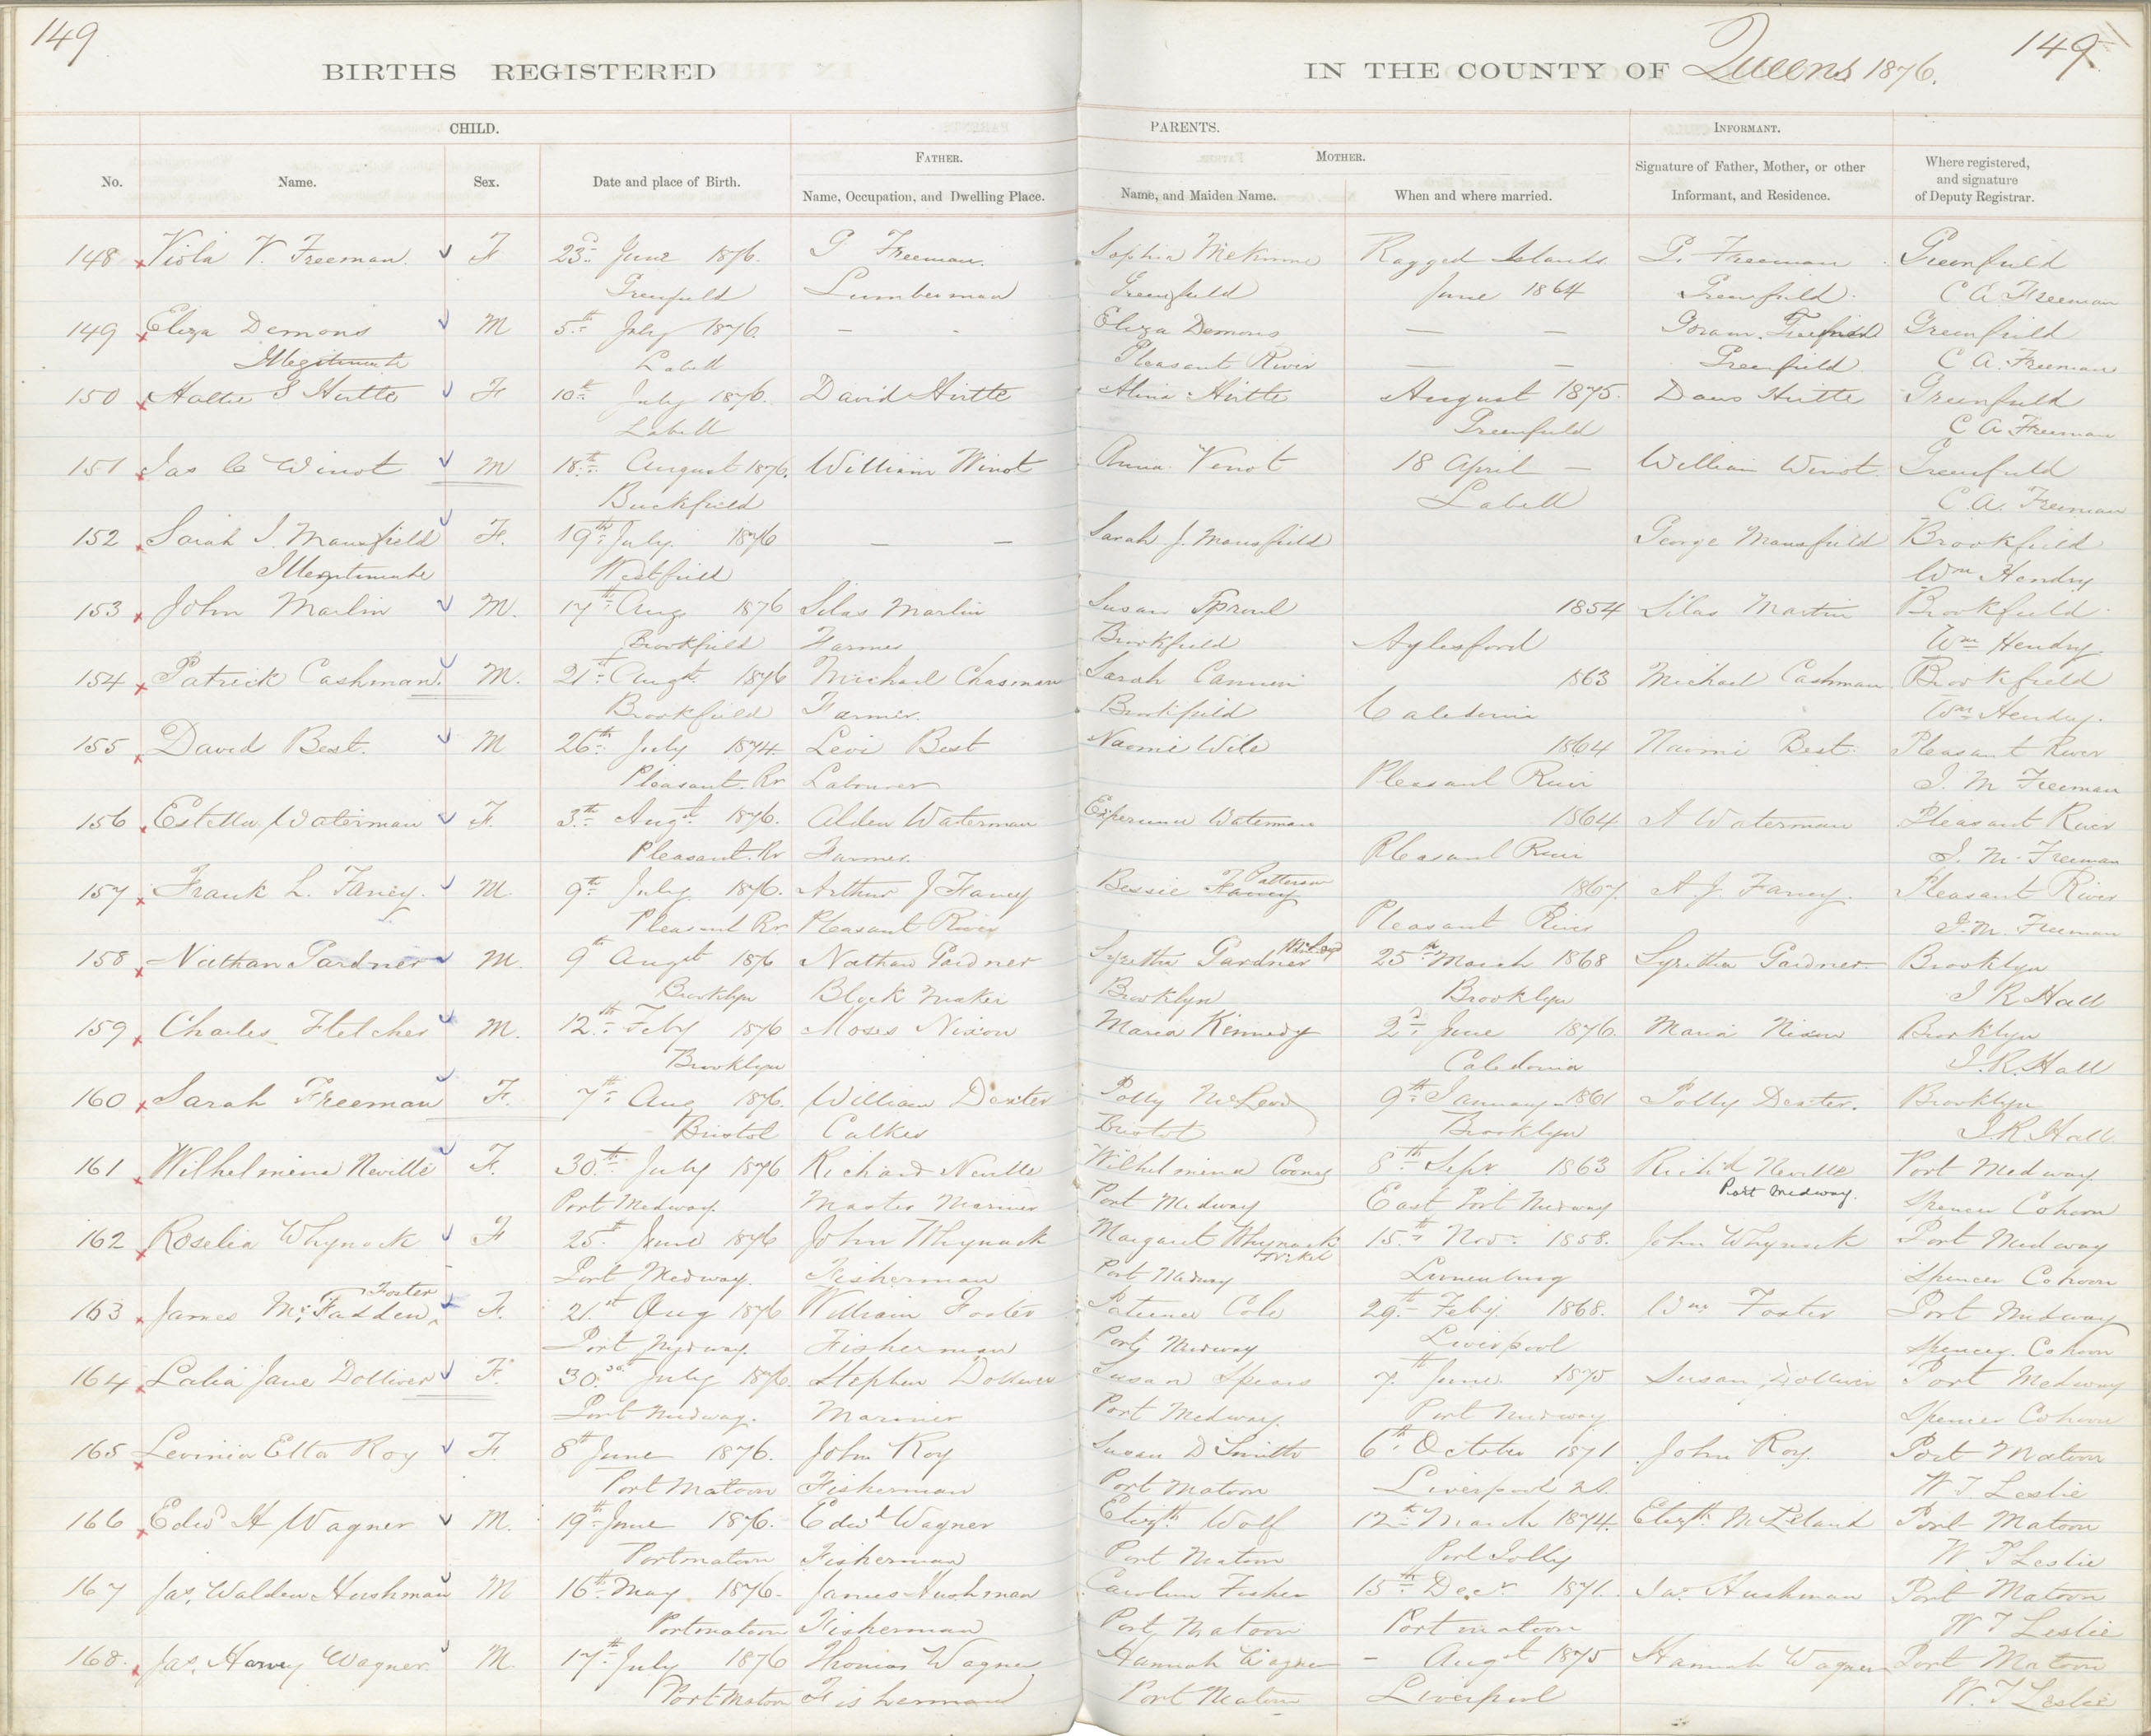 149
149
BIRTHS REGISTERED
IN THE COUNTY OF Queens 1876.
CHILD.
PARENTS.
INFORMANT.
FATHER.
MOTHER.
No.
Name.
Sex.
Date and place of Birth.
Name, Occupation, and Dwelling Place.
Name, and Maiden Name.
When and where married.
Signature of Father, Mother, or other
Informant, and Residence.
Where registered,
and signature
of Deputy Registrar.
148 Viola V. Freeman. F 23d June 1876. G Freeman. Sophia Ragged Islands G. Freeman Greenfield
Greenfield Lumberman Greenfield June 1864 Greenfield. C A. Freeman
149 Eliza Demons M 5th July 1876. — - Eliza Demons — — Greenfield
Illegitimate Labell Pleasant River — — Greenfield C A. Freeman
150 Hattie S Hirtle F 10th July 1876. David Hirtle Alina Hirtle August 1875. Hirtle Greenfield
Labell Greenfield C A Freeman
151 Jas C Winot M 18th August 1876. William Winot Anna Venot 18 April — William Winot Greenfield
Buckfield Labell C. A. Freeman
152 Sarah J. Mansfield F. 19th July. 1876 — — Sarah J. Mansfield George Mansfield Brookfield
Illegitimate Westfield Wm Hendry
153 John Marlin M. 17th Aug 1876 Silas Marlin Susan Sproul 1854 Silas Martin Brookfield
Brookfield Farmer Brookfield Aylesford Wm Hendry
154 Patrick Cashman. M. 21st Augt. 1876 Michael Chasman Sarah 1863 Michael Cashman Brookfield
Brookfield Farmer. Brookfield Caledonia Wm Hendry.
155 David Best. M 26th July 1874. Levi Best Naomi Wile 1864 Naomi Best. Pleasant River
Pleasant. Rr Labourer Pleasant River J. M Freeman
156 Estella Waterman F. 3th Augt 1876. Alden Waterman Experience Waterman 1864 A Waterman Pleasant River
Pleasant. Rr Farmer. Pleasant River J. M. Freeman
157 Frank L. Fancy. M. 9th July. 1876. Arthur J Fancy Bessie Fancy Patterson 1867. A. J. Fancy. Pleasant River
Pleasant Rr Pleasant River Pleasant River J. M. Freeman
158 Nathan Gardner M. 9th Augst 1876 Nathan Gardner Syretha Gardner 25th March 1868 Syretha Gardner. Brooklyn
Brooklyn Block Maker Brooklyn Brooklyn J R Hall
159 Charles Fletcher M. 12th Feby 1876 Moses Nixon Maria Kennedy 2d June 1876. Maria Nixon Brooklyn
Brooklyn Caledonia J. R. Hall
160 Sarah Freeman F. 7th Aug 1876. William Dexter Polly McLeod 9th January 1861 Polly Dexter. Brooklyn
Bristol Calker Bristol Brooklyn J. R. Hall
161 Wilhelmina Neville F. 30th July 1876 Richard Neville Wilhelmina Cooney 8th Sepr 1863 Richd Neville Port Medway
Port Medway. Master Mariner Port Medway East Port Medway Port Medway. Spencer Cohoon
162 Roselia Whynock F 25th June 1876 John Whynock Margaret Whynock 15th Nov. 1858. John Whynock Port Medway
Port Medway. Fisherman Port Medway Lunenburg Spencer Cohoon
163 James McFadden Foster F. 21st Aug 1876 William Foster Patience Cole 29th Feby. 1868. Wm Foster Port Medway
Port Medway. Fisherman Port Medway Liverpool Spencer Cohoon
164 Lalia Jane Dolliver F. 30 July 1876. Stephen Dolliver Susan Spears 7th June 1875 Susan Dolliver Port Medway
Port Medway. Mariner Port Medway. Port Medway Spencer Cohoon
165 Levinia Etta Roy F. 8th June 1876. John Roy Susan D Smith 6th October 1871 John Roy. Port Matoon
Port Matoon Fisherman Port Matoon Liverpool W T Leslie
166 Edwd H Wagner M. 19th June 1876. Edwd Wagner Elizth Wolf 12th March 1874. Elizth Port Matoon
Portmatoon Fisherman Port Matoon Port Jolly W T Leslie
167 Jas. Walden Hushman M 16th May 1876. James Hushman Caroline Fisher 15th Decr 1871. Jas. Hushman Port Matoon
Portmatoon Fisherman Port Matoon Port matoon W T Leslie
168. Jas. Harvey Wagner. M. 17th July 1876 Thomas Wagner Hannah Wagner - Augst 1875 Hannah Wagner Port Matoon
Port Matoon Fisherman Port Matoon Liverpool W. T Leslie